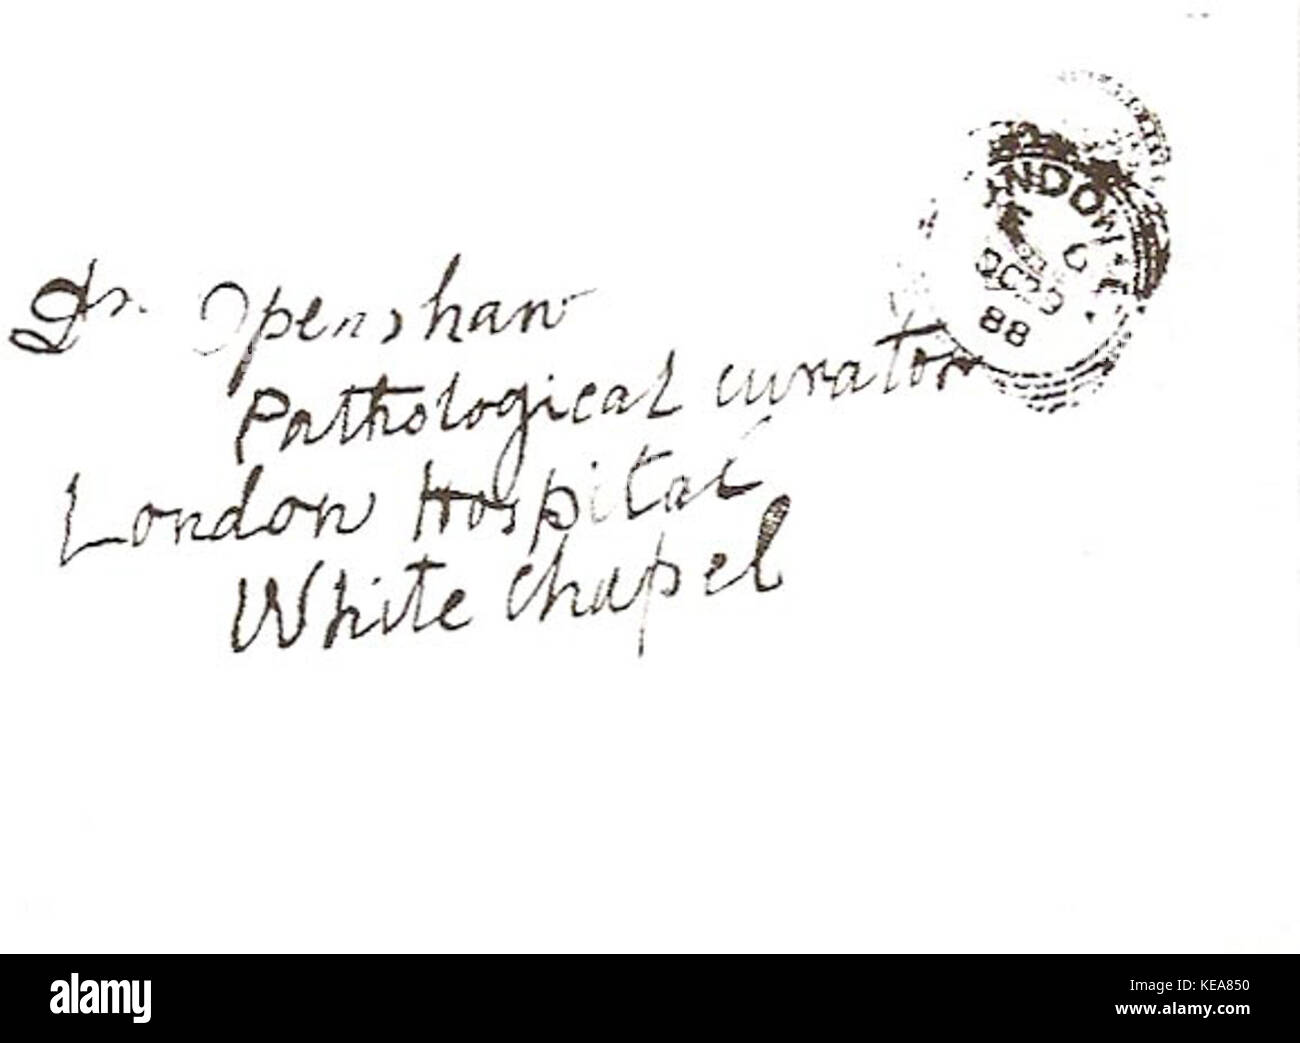 Dr. Openshaw
Pathological curator
London Hospital
White chapel
LONDON E
OC 29
88
a
alamy stock photo
alamy
Image ID: KEA850
www.alamy.com